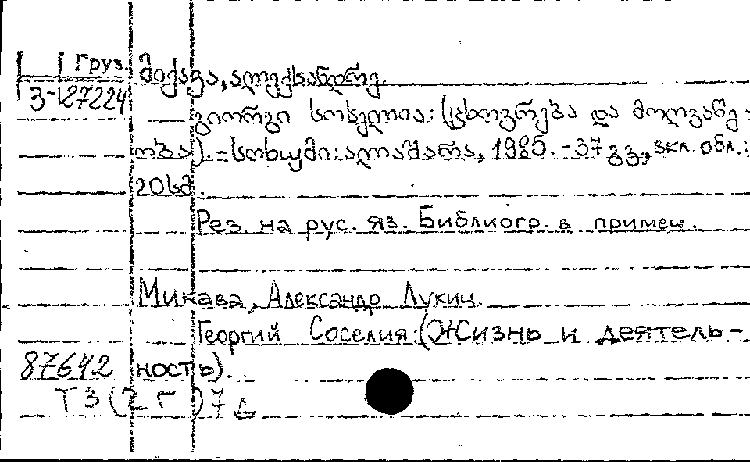 Груз. მიქავა, ალექსანდრე.
3-127224
გიორგი სოსელია: (ცხოვრება და მოღვაწე-
ობა). - სოხუმი: ალაშარა, 1985. - 37 გვ., экл. обл.;
20სმ.
Рез. на рус. яз. Библиогр. в примеч.
Микава, Александр Лукич.
Георгий Соселия: (Жизнь и деятель-
87642 ность).
Т3(2Г)7Д